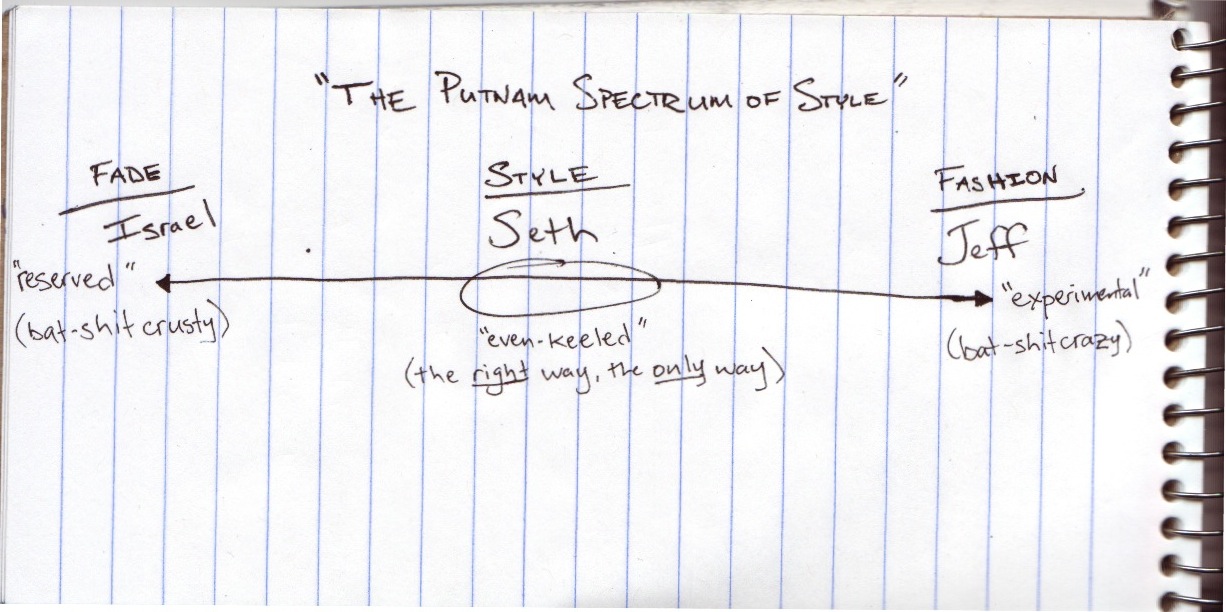 "THE PUTNAM SPECTRUM OF STYLE"
FADE
Israel
"reserved"
(bat-shit crusty)
STYLE
Seth
"even-keeled"
(the right way, the only way)
FASHION
Jeff
"experimental"
(bat-shit crazy)